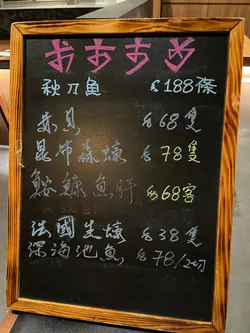 おすすめ
秋刀魚 $188條
赤貝 $68隻
昆布森蠔 $78隻
鮟鱇魚肝 $68客
法國生蠔 $38隻
深海池魚 $78/2切